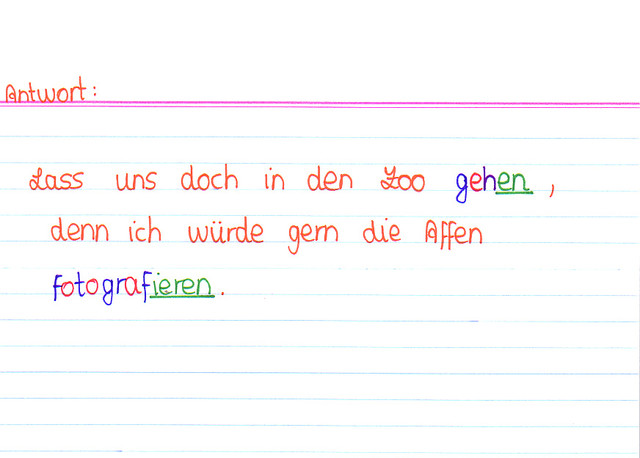 Antwort:
Lass uns doch in den Zoo gehen,
denn ich würde gern die Affen
fotografieren.